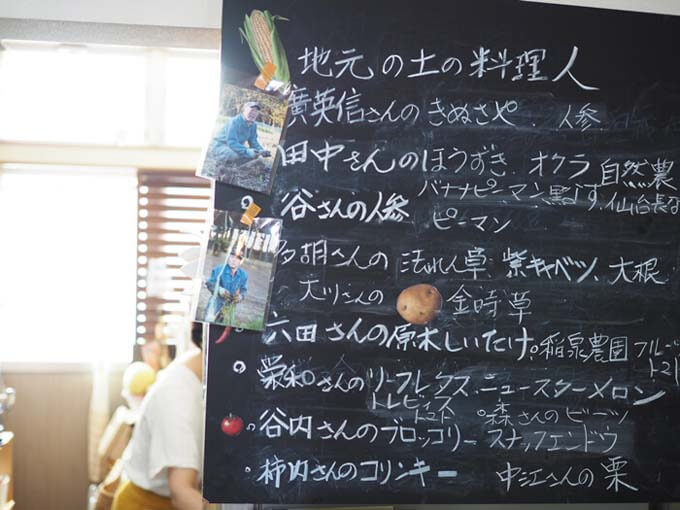 地元の土の料理人
廣英信さんの きぬさや、人参
田中さんのほうずき、オクラ 自然農
バナナピーマン 黒なす、仙台長なす
谷さんの人参 ピーマン
多胡さんの ほうれん草、紫キャベツ、大根
大川さんの 金時草
六田さんの原木しいたけ。稲泉農園 フルーツ
トマト
栄和さんのリーフレタス、ニュースターメロン
トレビス
トマト 森さんのビーツ
谷内さんのブロッコリー スナップエンドウ
柿内さんのコリンキー 中江さんの栗